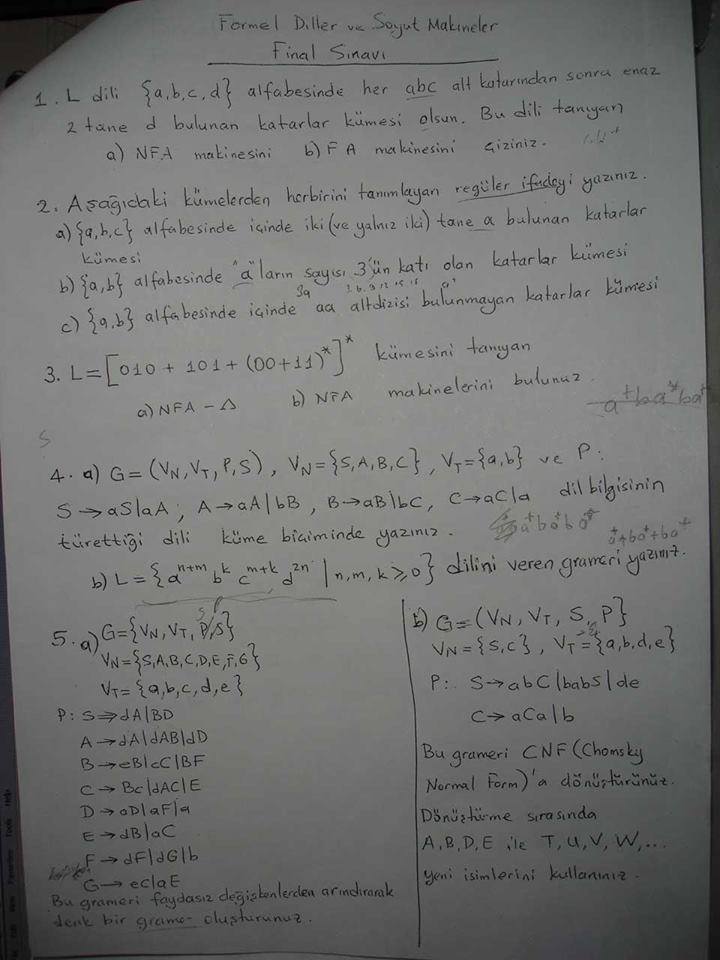 Formel Diller ve Soyut Makineler
Final Sınavı
1. L dili {a,b,c,d} alfabesinde her abc alt katarından sonra enaz
2 tane d bulunan katarlar kümesi olsun. Bu dili tanıyan
a) NFA makinesini b) FA makinesini çiziniz.
2. Aşağıdaki kümelerden herbirini tanımlayan regüler ifadeyi yazınız.
a) {a,b,c} alfabesinde içinde iki (ve yalnız iki) tane a bulunan katarlar
kümesi
b) {a,b} alfabesinde "a"ların sayısı 3'ün katı olan katarlar kümesi
3a
c) {a,b} alfabesinde içinde aa altdizisi bulunmayan katarlar kümesi
3. L = [010 + 101 + (00+11)*]* kümesini tanıyan
a) NFA - Λ b) NFA makinelerini bulunuz.
a⁺ba*ba⁺
S
4. a) G = (V_N, V_T, P, S), V_N = {S,A,B,C}, V_T = {a,b} ve P:
S → aS|aA, A → aA|bB, B → aB|bC, C → aC|a dil bilgisinin
türettiği dili küme biçiminde yazınız.
b) L = {a^(n+m) b^k c^(m+k) d^(2n) | n,m,k ≥ 0} dilini veren grameri yazınız.
5. a) G = {V_N, V_T, P, S}
V_N = {S,A,B,C,D,E,F,G}
V_T = {a,b,c,d,e}
P: S ⇒ dA|BD
A → dA|dAB|dD
B → eB|cC|BF
C → Bc|dAC|E
D → aD|aF|a
E → dB|aC
F → dF|dG|b
G → eC|aE
Bu grameri faydasız değişkenlerden arındırarak
denk bir gramer oluşturunuz.
b) G = (V_N, V_T, S, P}
V_N = {S,C}, V_T = {a,b,d,e}
P: S → abC|babS|de
C → aCa|b
Bu grameri CNF (Chomsky
Normal Form)'a dönüştürünüz.
Dönüştürme sırasında
A,B,D,E ile T,U,V,W,...
yeni isimlerini kullanınız.